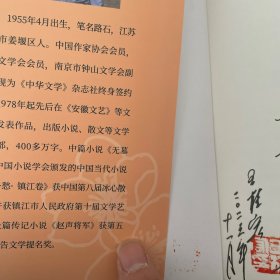 1955年4月出生，笔名路石，江苏
市姜堰区人。中国作家协会会员，
文学会会员，南京市钟山文学会副
现为《中华文学》杂志社终身签约
978年起先后在《安徽文艺》等文
发表作品，出版小说、散文等文学
部，400多万字。中篇小说《无墓
中国小说学会颁发的中国当代小说
愁·镇江卷》获中国第八届冰心散
并获镇江市人民政府第十届文学艺
长篇传记小说《赵声将军》获第五
告文学提名奖。
二〇二三年
十一月